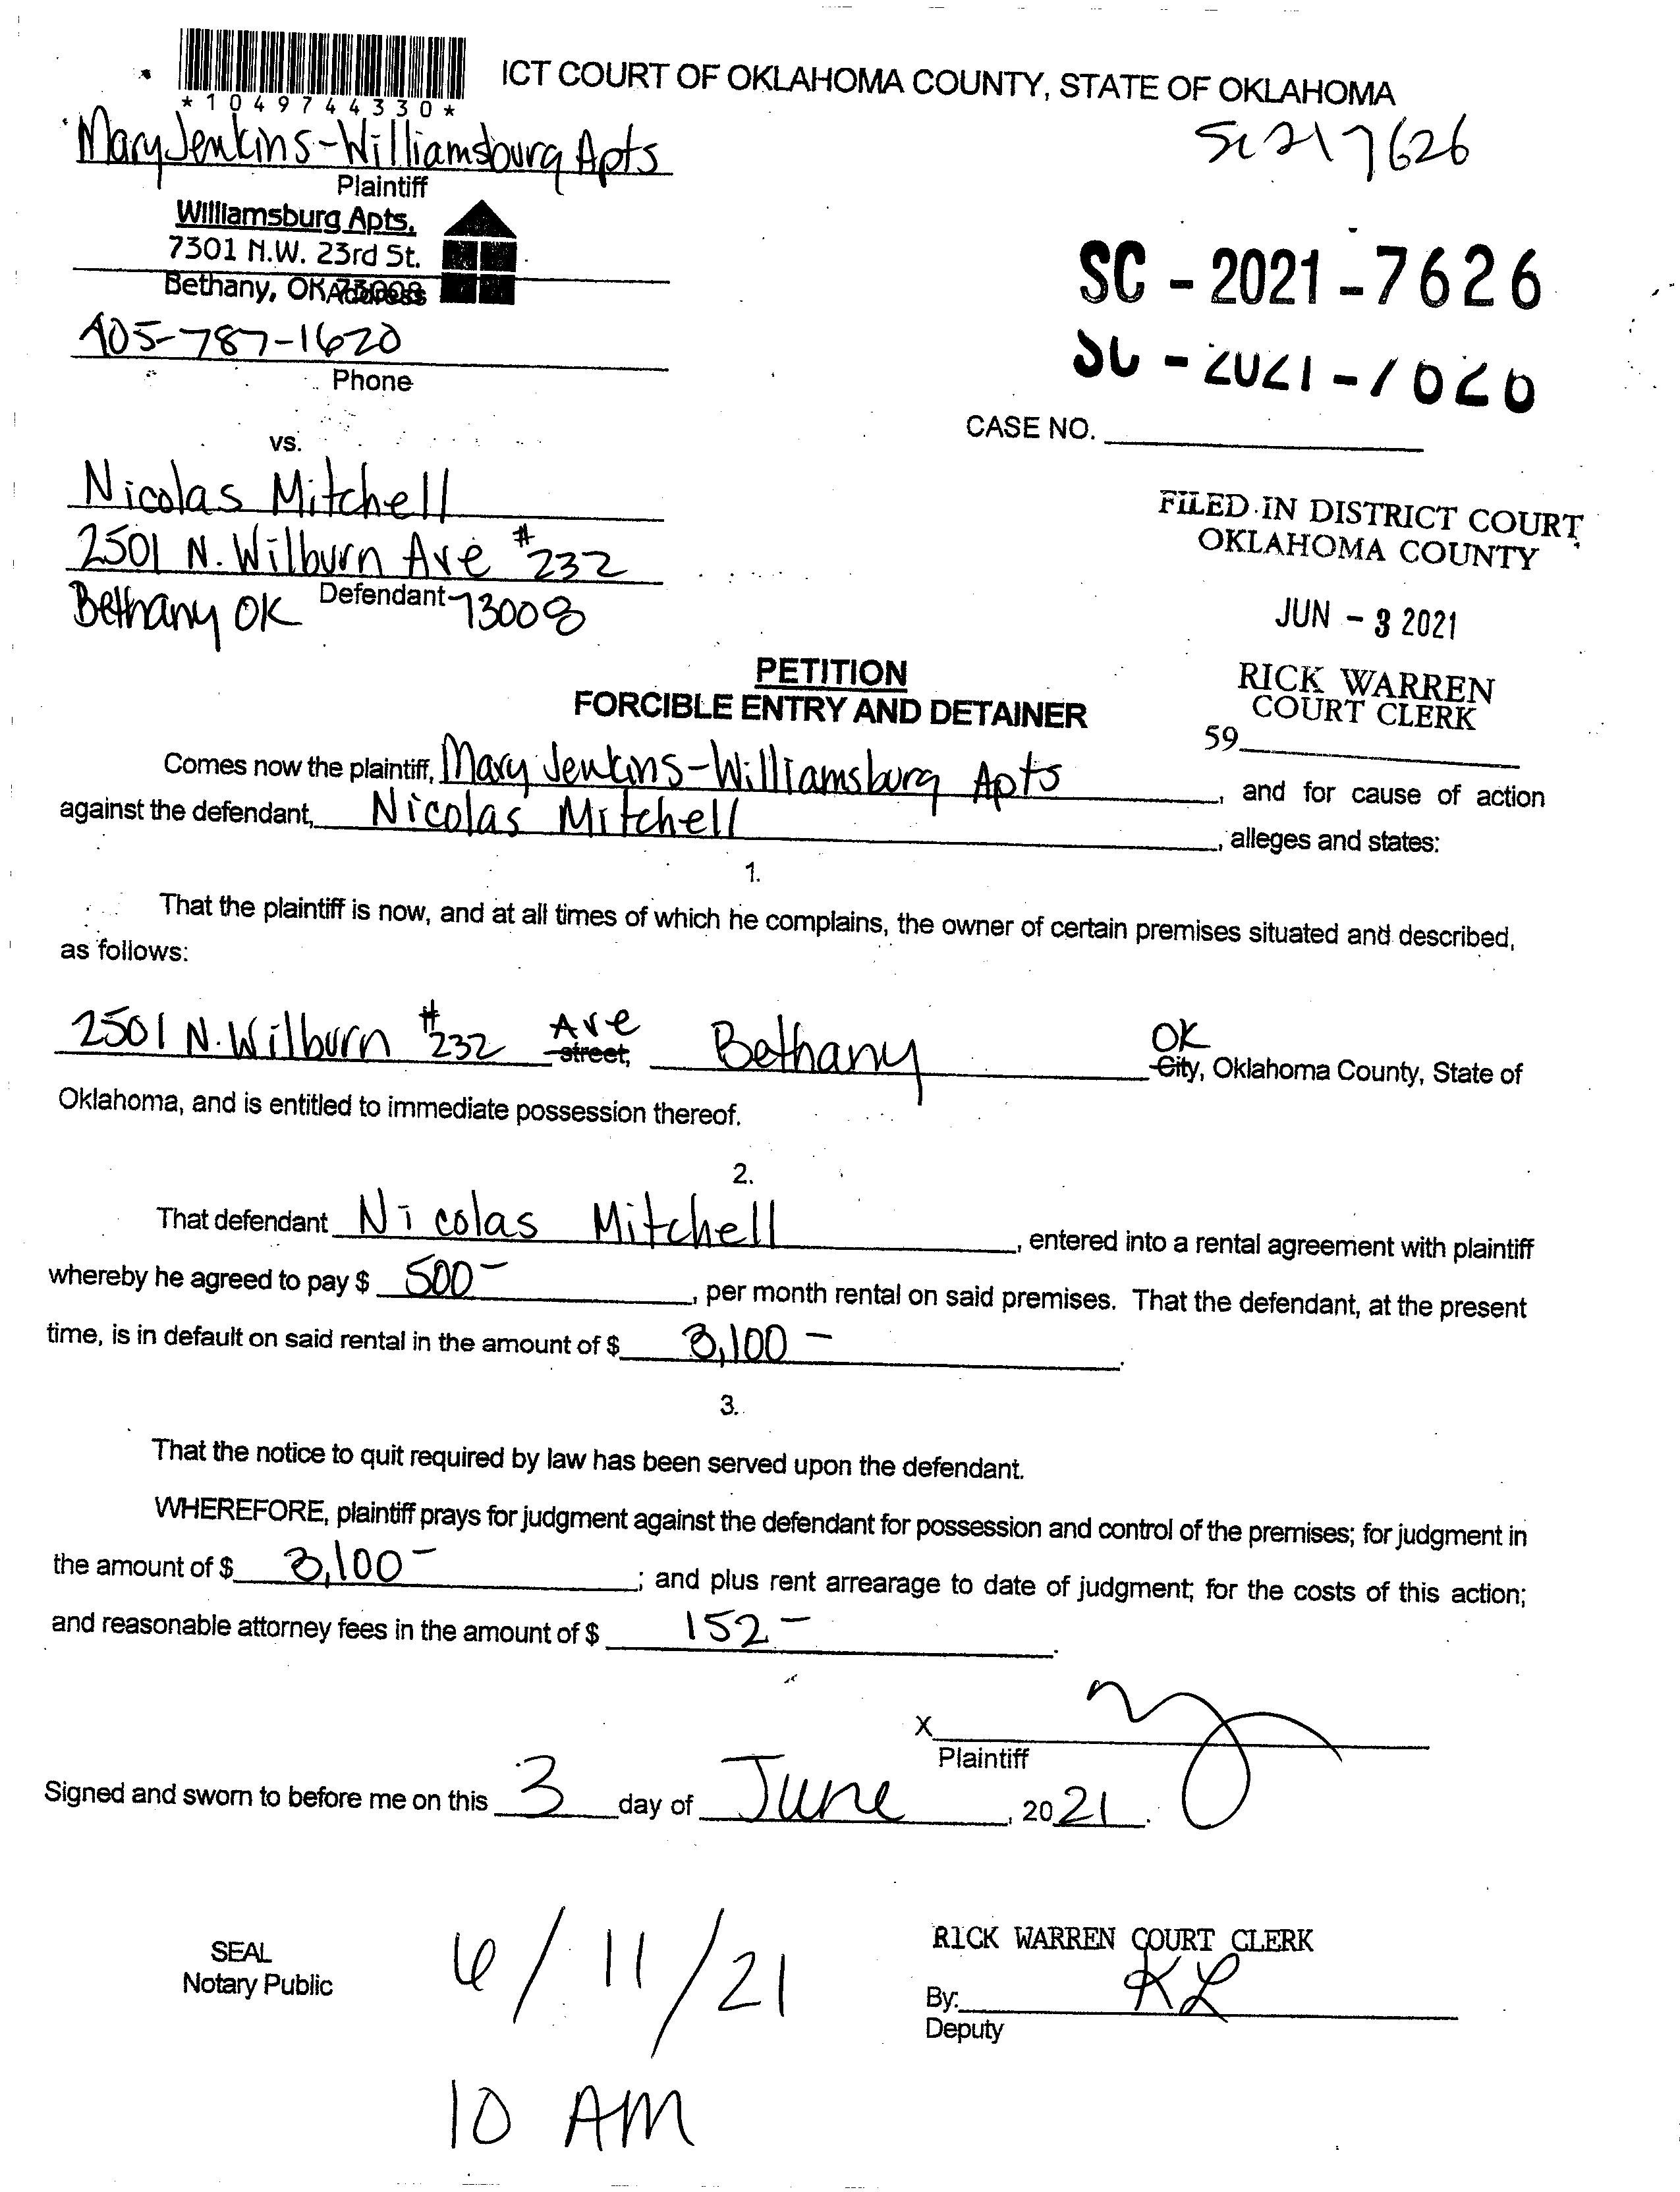 ICT COURT OF OKLAHOMA COUNTY, STATE OF OKLAHOMA
*1049744330*
Mary Jenkins-Williamsburg Apts
SC217626
Plaintiff
Williamsburg Apts.
7301 N.W. 23rd St.
Bethany, OK 73008
Address
SC-2021-7626
405-787-1620
Phone
SC-2021-7626
CASE NO.
vs.
Nicolas Mitchell
2501 N. Wilburn Ave #232
Defendant
Bethany OK 73008
FILED IN DISTRICT COURT
OKLAHOMA COUNTY
JUN - 3 2021
RICK WARREN
COURT CLERK
59
PETITION
FORCIBLE ENTRY AND DETAINER
Comes now the plaintiff, Mary Jenkins-Williamsburg Apts, and for cause of action
against the defendant, Nicolas Mitchell, alleges and states:
1.
That the plaintiff is now, and at all times of which he complains, the owner of certain premises situated and described,
as follows:
2501 N. Wilburn #232 Ave street, Bethany OK City, Oklahoma County, State of
Oklahoma, and is entitled to immediate possession thereof.
2.
That defendant Nicolas Mitchell, entered into a rental agreement with plaintiff
whereby he agreed to pay $ 500-, per month rental on said premises. That the defendant, at the present
time, is in default on said rental in the amount of $ 3,100-.
3.
That the notice to quit required by law has been served upon the defendant.
WHEREFORE, plaintiff prays for judgment against the defendant for possession and control of the premises; for judgment in
the amount of $ 3,100-; and plus rent arrearage to date of judgment; for the costs of this action;
and reasonable attorney fees in the amount of $ 152-.
X
Plaintiff
Signed and sworn to before me on this 3 day of June, 2021.
SEAL
Notary Public
6/11/21
10 AM
RICK WARREN COURT CLERK
By: KL
Deputy